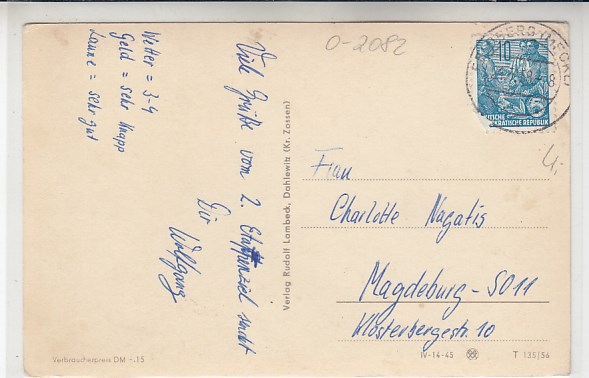 Wetter = 3-4
Geld = sehr knapp
Laune = sehr gut
Viele Grüße vom 2. Etappenziel sendet
Dir
Wolfgang
O-2082
10
DEUTSCHE
DEMOKRATISCHE REPUBLIK
Verlag Rudolf Lambeck, Dahlewitz (Kr. Zossen)
Frau
Charlotte Nagatis
Magdeburg - SO11
Klosterbergestr. 10
Verbraucherpreis DM -.15
IV-14-45
T 135/56